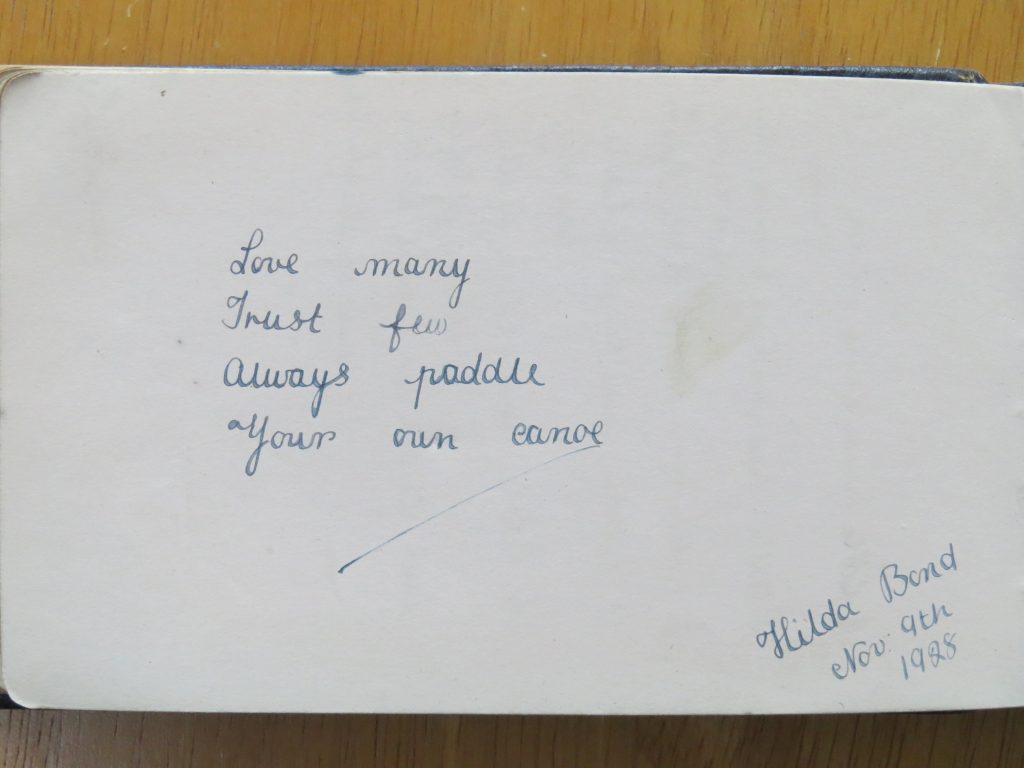 Love many
Trust few
Always paddle
Your own canoe
Hilda Bond
Nov. 9th
1928